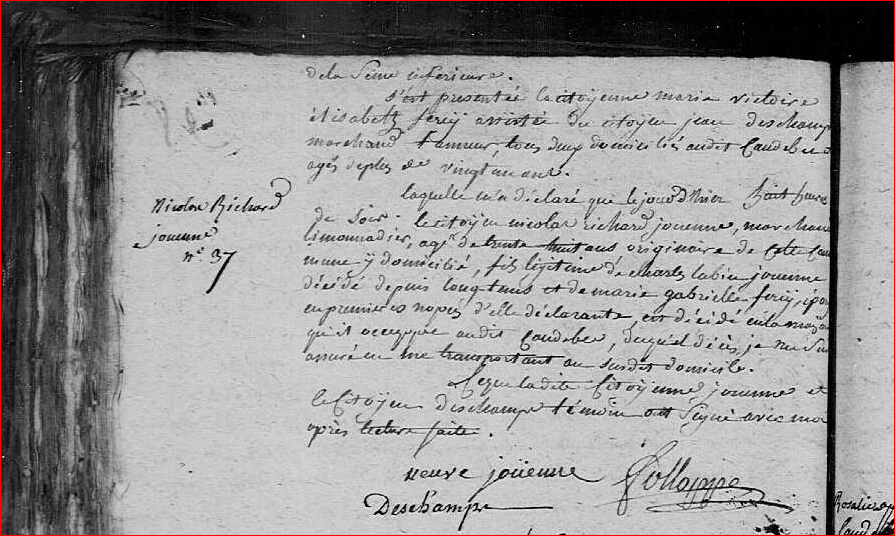 de la Seine inferieure.
s'est presentée la citoyenne marie victoire
élisabeth ferey assistée du citoyen jean deschamps
marchand tanneur, tous deux domiciliés audit Caudebec
agés de plus de vingt un ans.
laquelle m'a déclaré que le jour d'hier huit heures
de Soir. le citoyen nicolas richard jouenne, marchand
limonnadier, agé de trente huit ans originaire de cette Com
mune y domicilié, fils légitime de charles jouenne
décédé depuis long-tems et de marie gabrielle ferey, époux
en premieres nopces d'elle déclarante, est décédé en la maison
qu'il occuppe audit Caudebec, duquel décès, je me suis
assuré en me transportant au susdit domicile.
Ce que ladite Citoyenne jouenne et
le Citoyen deschamps témoin ont signé avec moi
après lecture faite.
Nicolas Richard
jouenne
n° 37
veuve jouenne
Deschamps
Rosalie
Caud